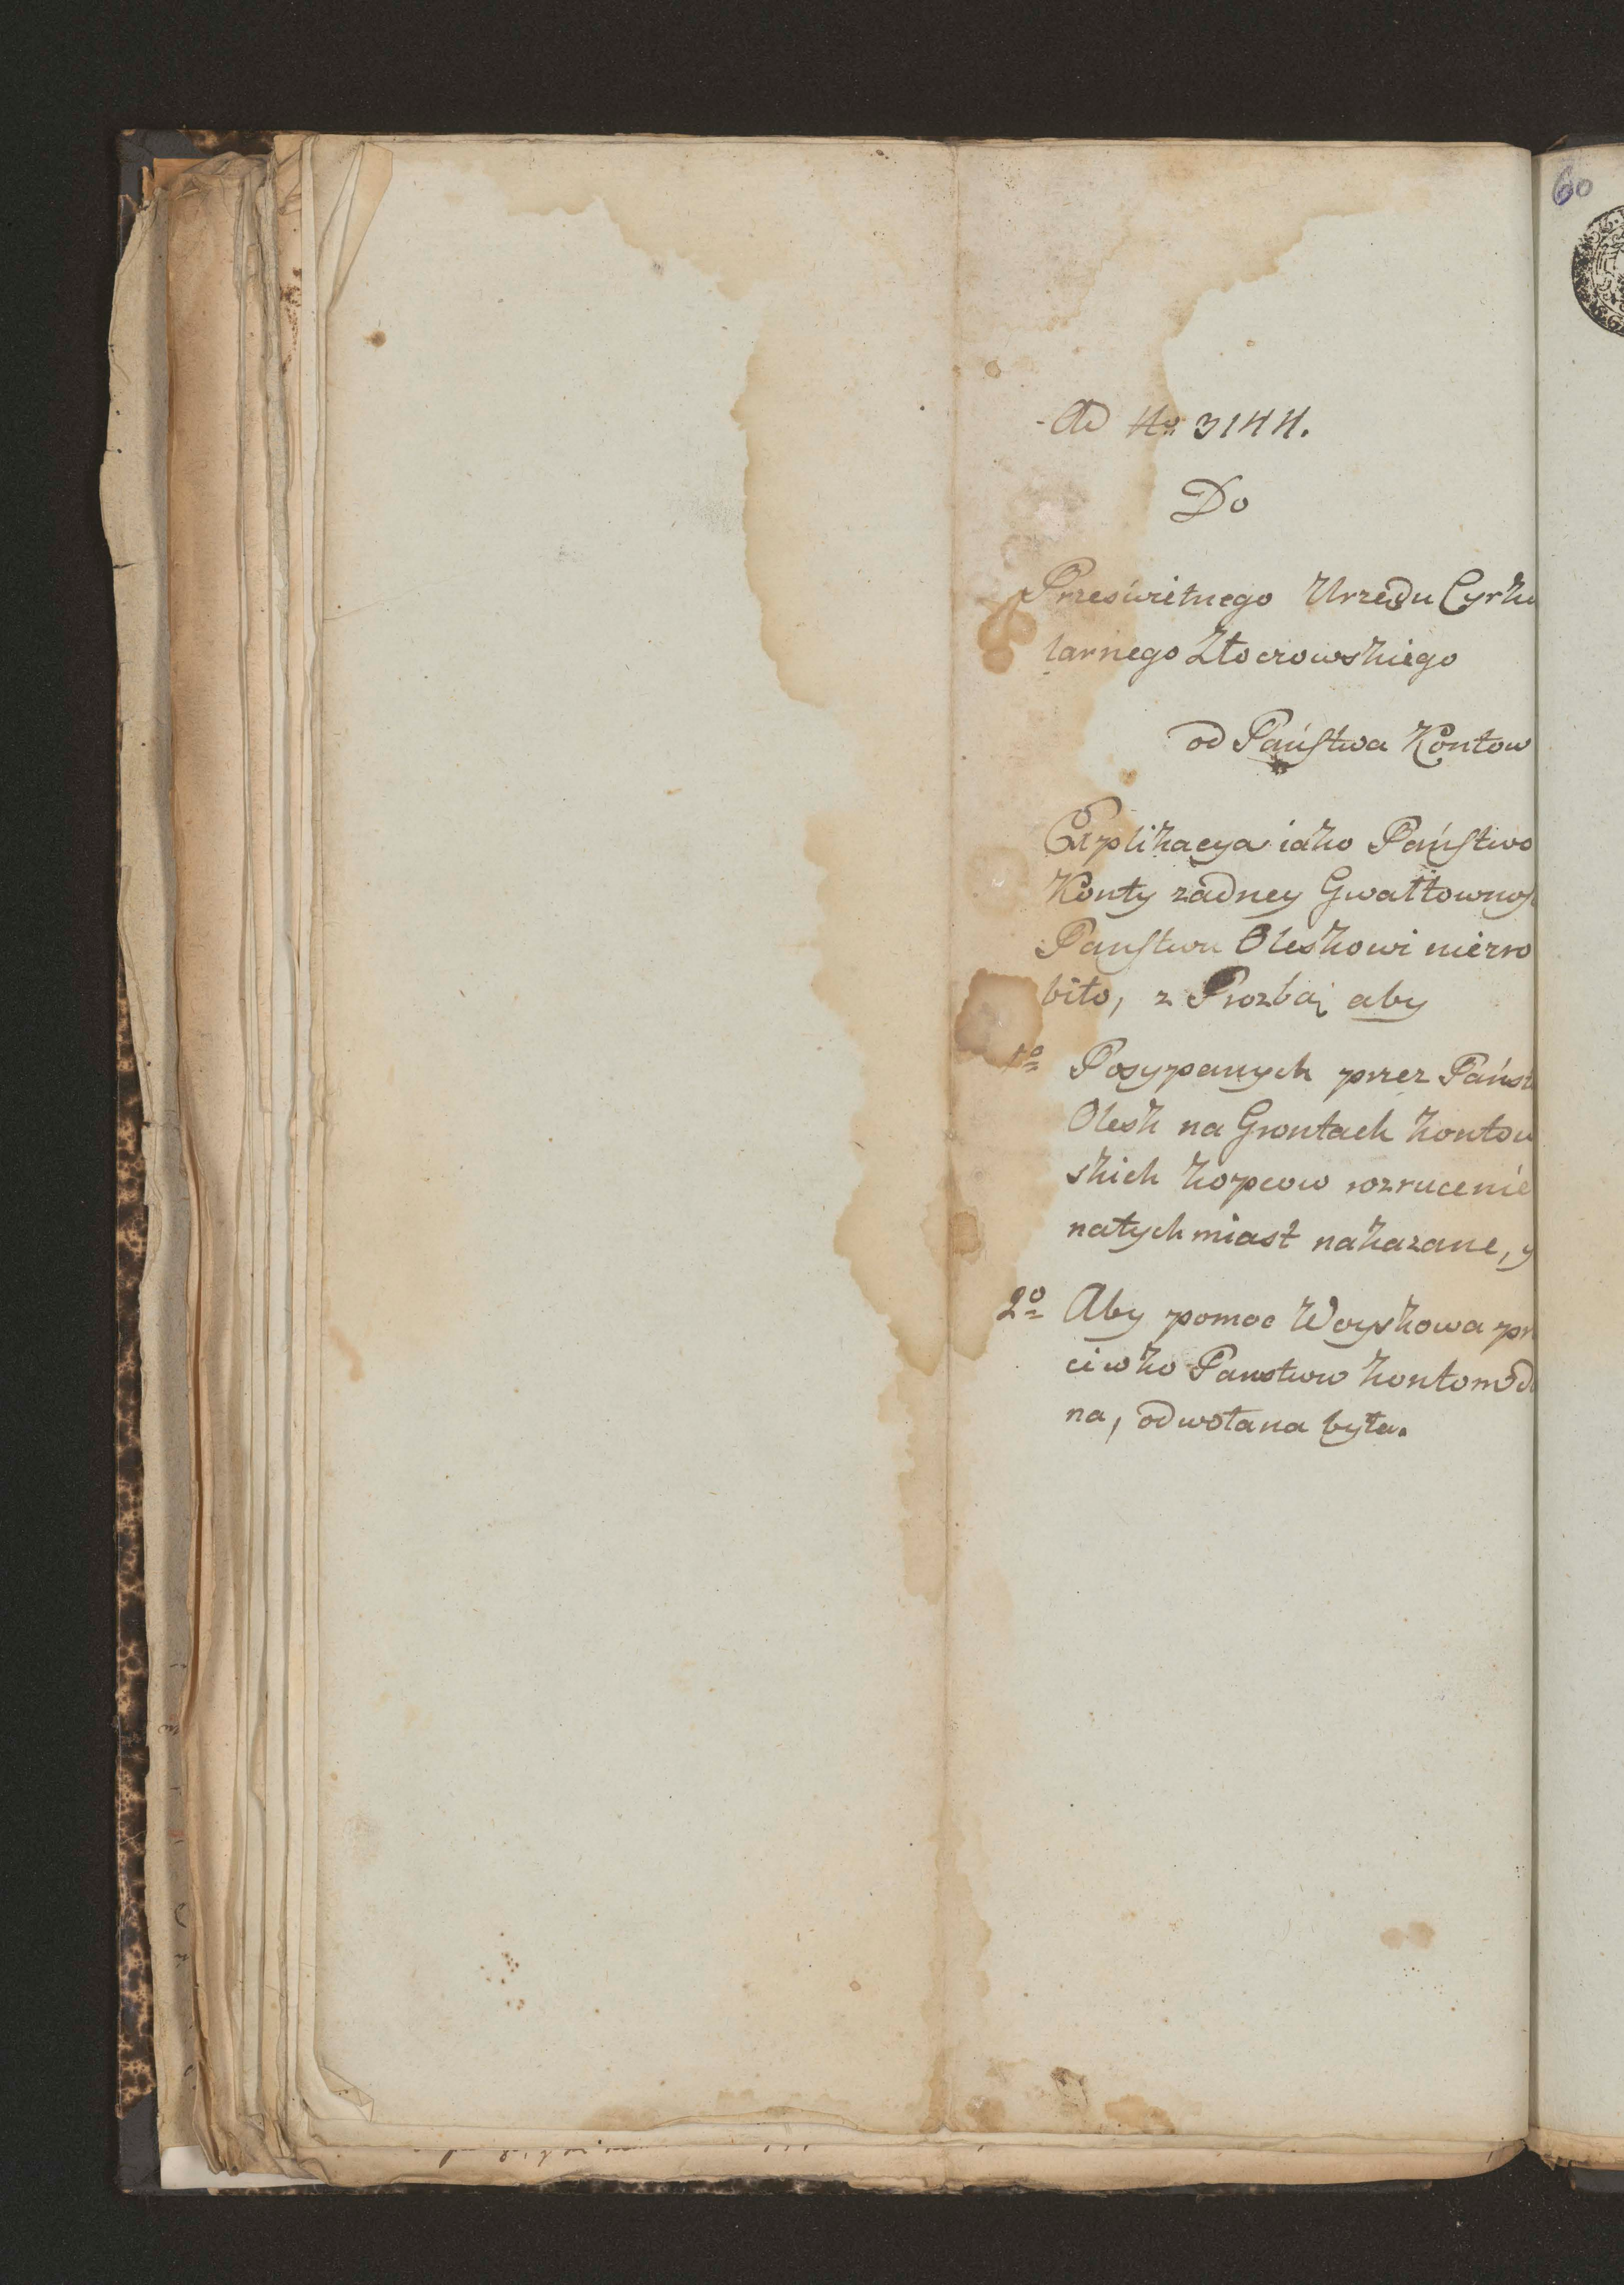 60
Ad No 3144.
Do
Prześwietnego Urzędu Cyrku
larnego Złoczowskiego
od Pańſtwa Kontow
Explikacya iako Pańſtwo
Konty zadney Gwałtownoſ
Panſtwu Oleskowi niezro
biło, z Prozbą aby
1o Posypanych przez Państ
Olesk na Grontach kontow
skich kopcow rozrucenie
natychmiast nakazane, y
2o Aby pomoc Woyskowa prze
ciwko Panstwu kontom do
na, odwołana była.